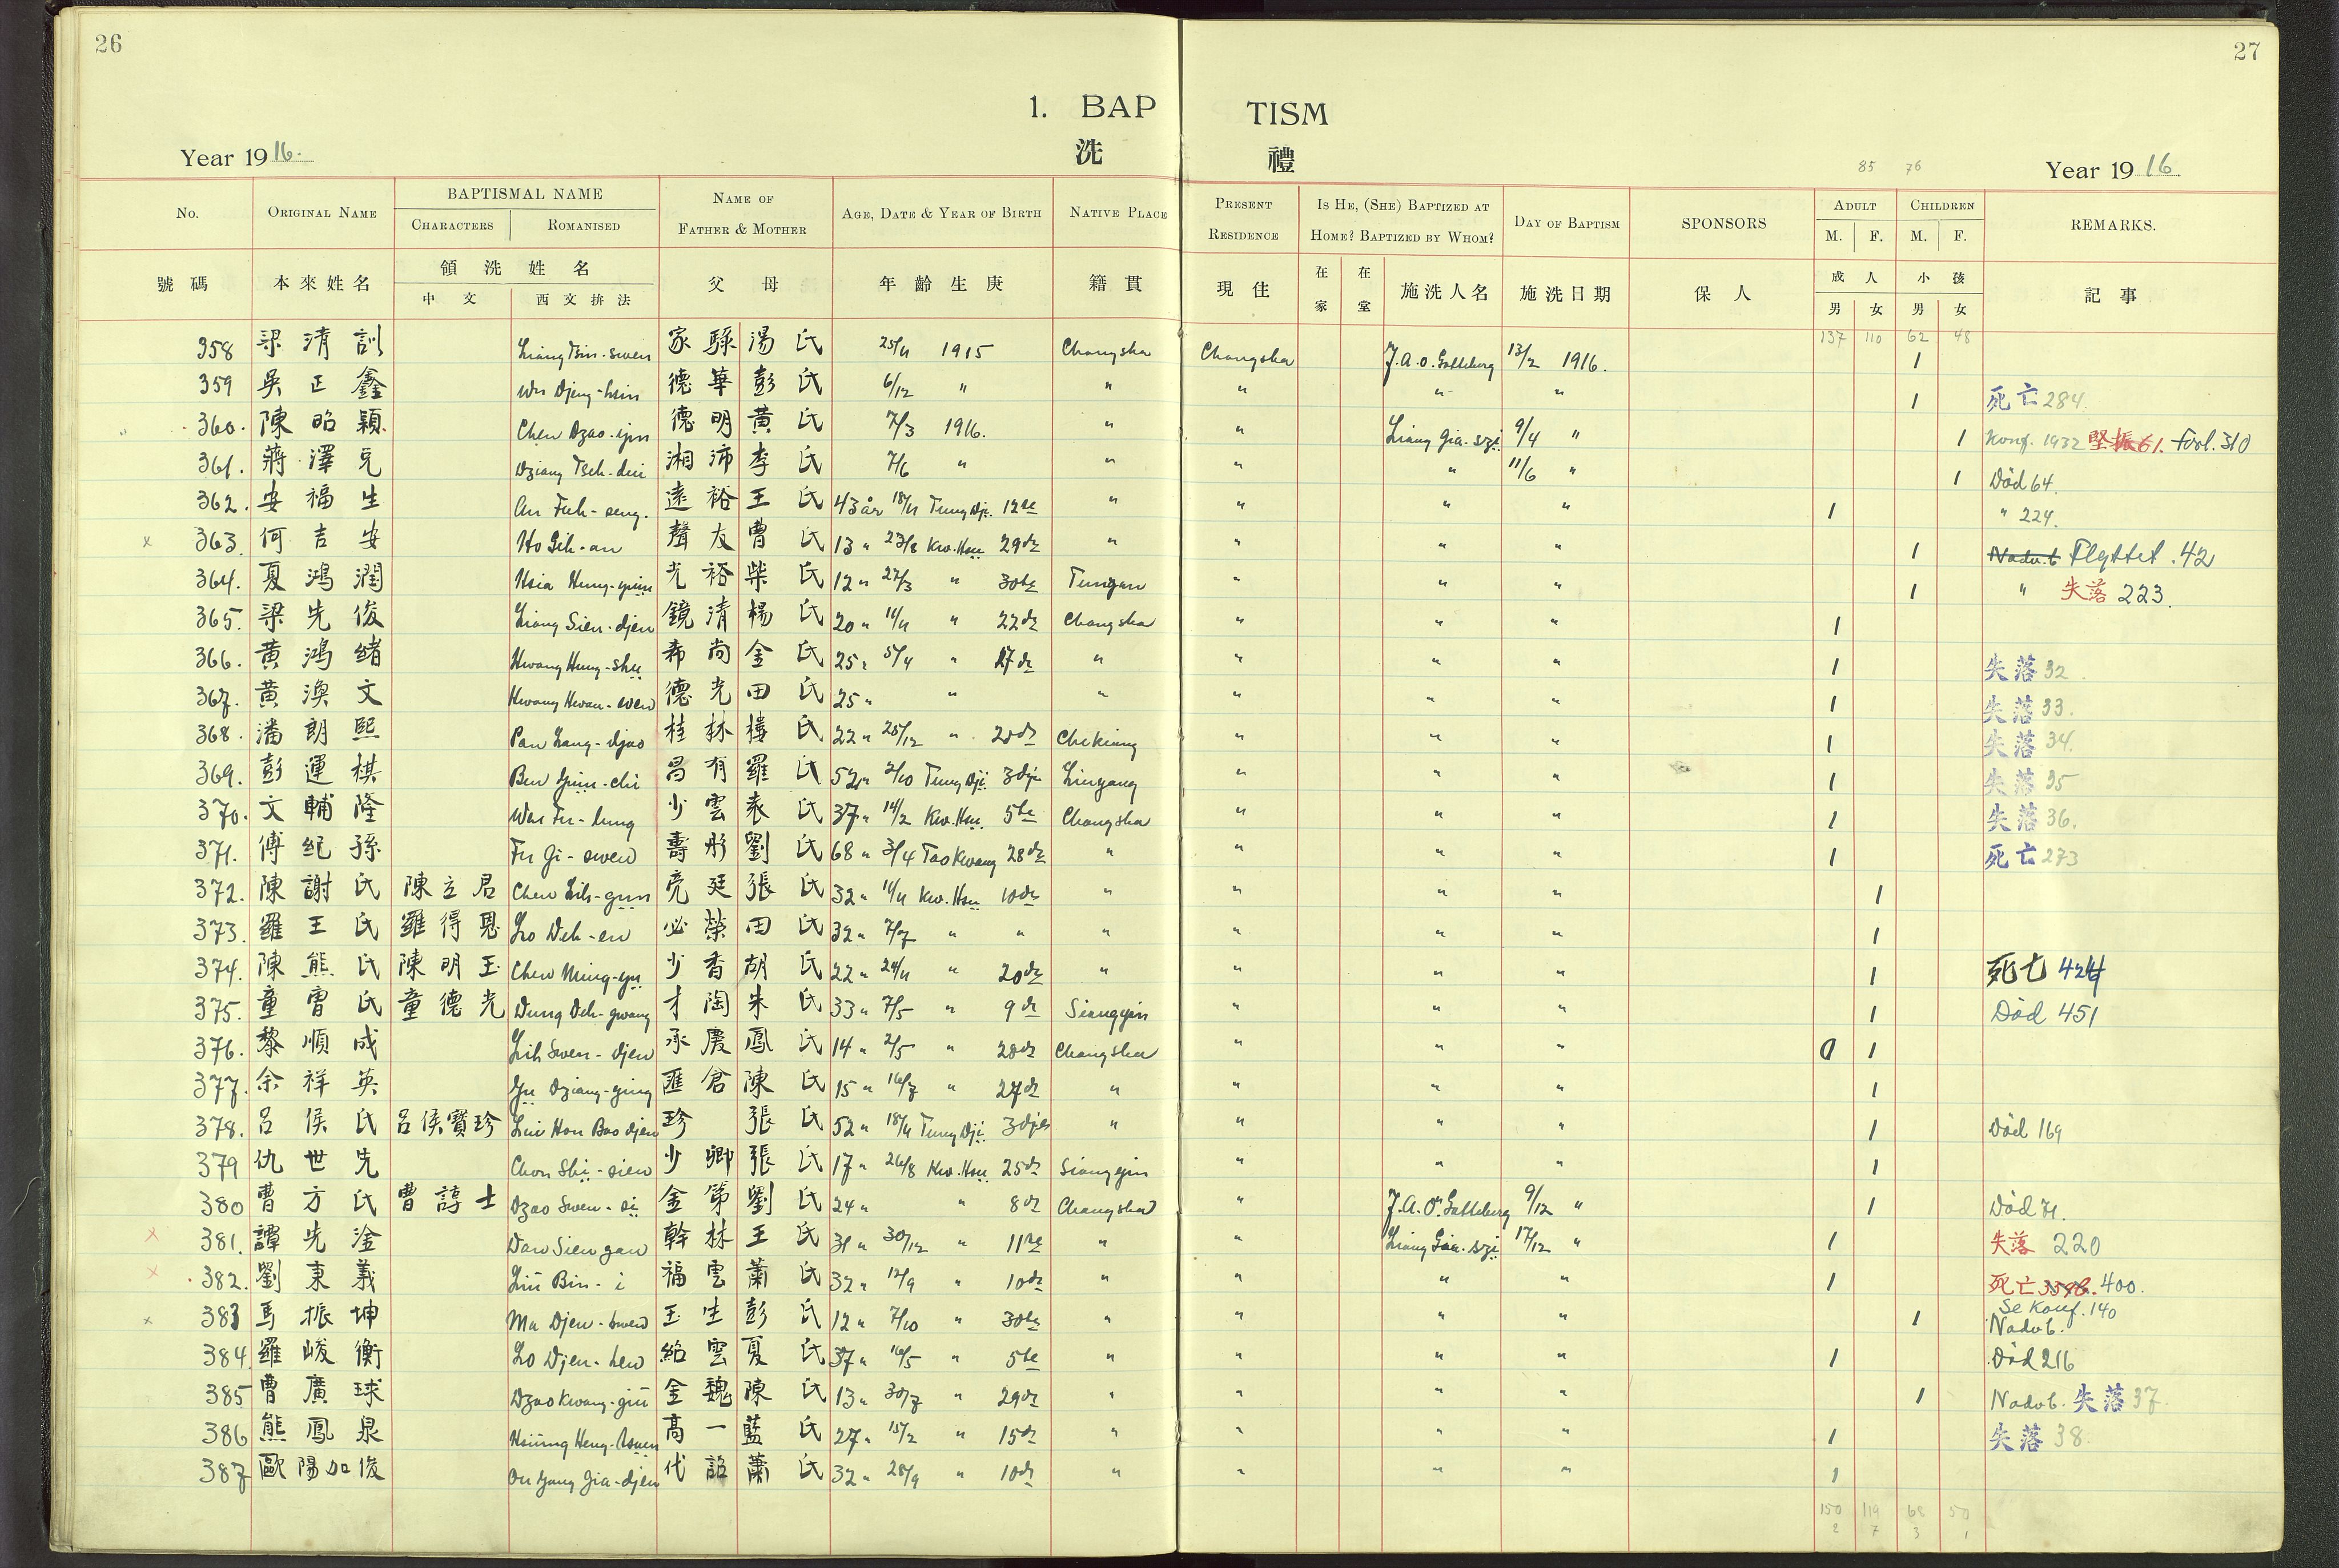 26
27
1. BAP TISM
洗 禮
Year 1916.
85 76
Year 1916
No. ORIGINAL NAME BAPTISMAL NAME CHARACTERS ROMANISED NAME OF FATHER & MOTHER AGE, DATE & YEAR OF BIRTH NATIVE PLACE PRESENT RESIDENCE IS HE, (SHE) BAPTIZED AT HOME? BAPTIZED BY WHOM? DAY OF BAPTISM SPONSORS ADULT M. F. CHILDREN M. F. REMARKS.
號碼 本來姓名 領洗姓名 中文 西文拚法 父母 年齡生庚 籍貫 現住 在家 在堂 施洗人名 施洗日期 保人 成人 男 女 小孩 男 女 記事
137 110 62 48
358 梁清訓 Liang Tsin-swen 家騄 湯氏 25/11 1915 Changsha Changsha J.A.O. Gotteberg 13/2 1916. 1
359 吳正鑫 Wu Djeng-hsin 德華 彭氏 6/12 " " " " " 1 死亡 284.
360. 陳昭穎 Chen Dzao-yin 德明 黃氏 7/3 1916. " " Liang Gia-szi 9/4 " 1 Konf. 1932 堅振 61. Forl. 310
361. 蔣澤兌 Dziang Tseh-dui 湘沛 李氏 7/6 " " " " 11/6 " 1 Död 64.
362. 安福生 An Fuh-seng. 遠裕 王氏 43 år 18/11 Tung Dji. 12te " " " " 1 " 224.
363. 何吉安 Ho Gih-an 聲友 曹氏 13 " 23/8 Kw. Hsu 29de " " " " 1 Nadvb. Flyttet. 42
364. 夏鴻潤 Hsia Hung-yuin 光裕 柴氏 12 " 27/3 " 30te Tungan " " " 1 " 失落 223.
365. 梁先俊 Liang Sien-djen 鏡清 楊氏 20 " 14/11 " 22de Changsha " " " 1
366. 黃鴻緒 Hwang Hung-shu 希尚 金氏 25 " 5/4 " 17de " " " " 1 失落 32.
367. 黃渙文 Hwang Hwan-wen 德光 田氏 25 " " " " " " 1 失落 33.
368. 潘朗熙 Pan Lang-djao 桂林 樓氏 22 " 25/12 " 20de Chekiang " " " 1 失落 34.
369. 彭運棋 Ben Yuin-chi 昌有 羅氏 52 " 2/10 Tung Dji 3dje Liuyang " " " 1 失落 35
370. 文輔隆 Wen Fu-lung 少雲 袁氏 37 " 14/2 Kw. Hsu. 5te Changsha " " " 1 失落 36.
371. 傅紀孫 Fu Gi-swen 壽彤 劉氏 68 " 3/4 Tao Kwang 28de " " " " 1 死亡 273
372. 陳謝氏 陳立君 Chen Lih-gun 亮廷 張氏 32 " 14/11 Kw. Hsu 10de " " " " 1
373. 羅王氏 羅得恩 Lo Deh-en 必榮 田氏 32 " 7/7 " " " " " " 1
374. 陳熊氏 陳明玉 Chen Ming-yu 少香 胡氏 22 " 24/11 " 20de " " " " 1 死亡 424
375. 童曾氏 童德光 Dung Deh-gwang 才陶 朱氏 33 " 7/5 " 9de Siangyin " " " 1 Död 451
376. 黎順成 Lih Swen-djen 承慶 鳳氏 14 " 2/5 " 28de Changsha " " " 0 1
377. 余祥英 Yu Dziang-ying 匯倉 陳氏 15 " 16/7 " 27de " " " " 1
378. 呂侯氏 呂侯寶珍 Lui Hou Bao djen 珍 張氏 52 " 18/11 Tung Dji. 3dje " " " " 1 Död 169
379 仇世先 Chou Shi-sien 少卿 張氏 17 " 26/8 Kw. Hsu 25de Siangyin " " " 1
380 曹方氏 曹諄士 Dzao Swen-si 金第 劉氏 24 " " 8de Changsha " J.A.O. Gotteberg 9/12 " 1 Död 71.
381. 譚先淦 Dan Sien gan 幹林 王氏 31 " 30/12 " 11te " " Liang Gia-szi 17/12 " 1 失落 220
382. 劉秉義 Liu Bin-i 福雲 蕭氏 32 " 12/9 " 10de " " " " 1 死亡 400.
383 馬振坤 Ma Djen-kwen 玉生 彭氏 12 " 7/10 " 30te " " " " 1 Se Konf. 140 Nadvb.
384 羅峻衡 Lo Djen-hen 紹雲 夏氏 37 " 16/5 " 5te " " " " 1 Död 216
385 曹廣球 Dzao Kwang-giu 金魏 陳氏 13 " 30/7 " 29de " " " " 1 Nadvb. 失落 37.
386 熊鳳泉 Hsiung Heng-tsuen 高一 藍氏 27 " 15/2 " 15de " " " " 1 失落 38.
387 歐陽加俊 Ou Yang Gia-djen 代韶 蕭氏 32 " 28/9 " 10de " " " " 1
150 119 68 50
2 7 3 1